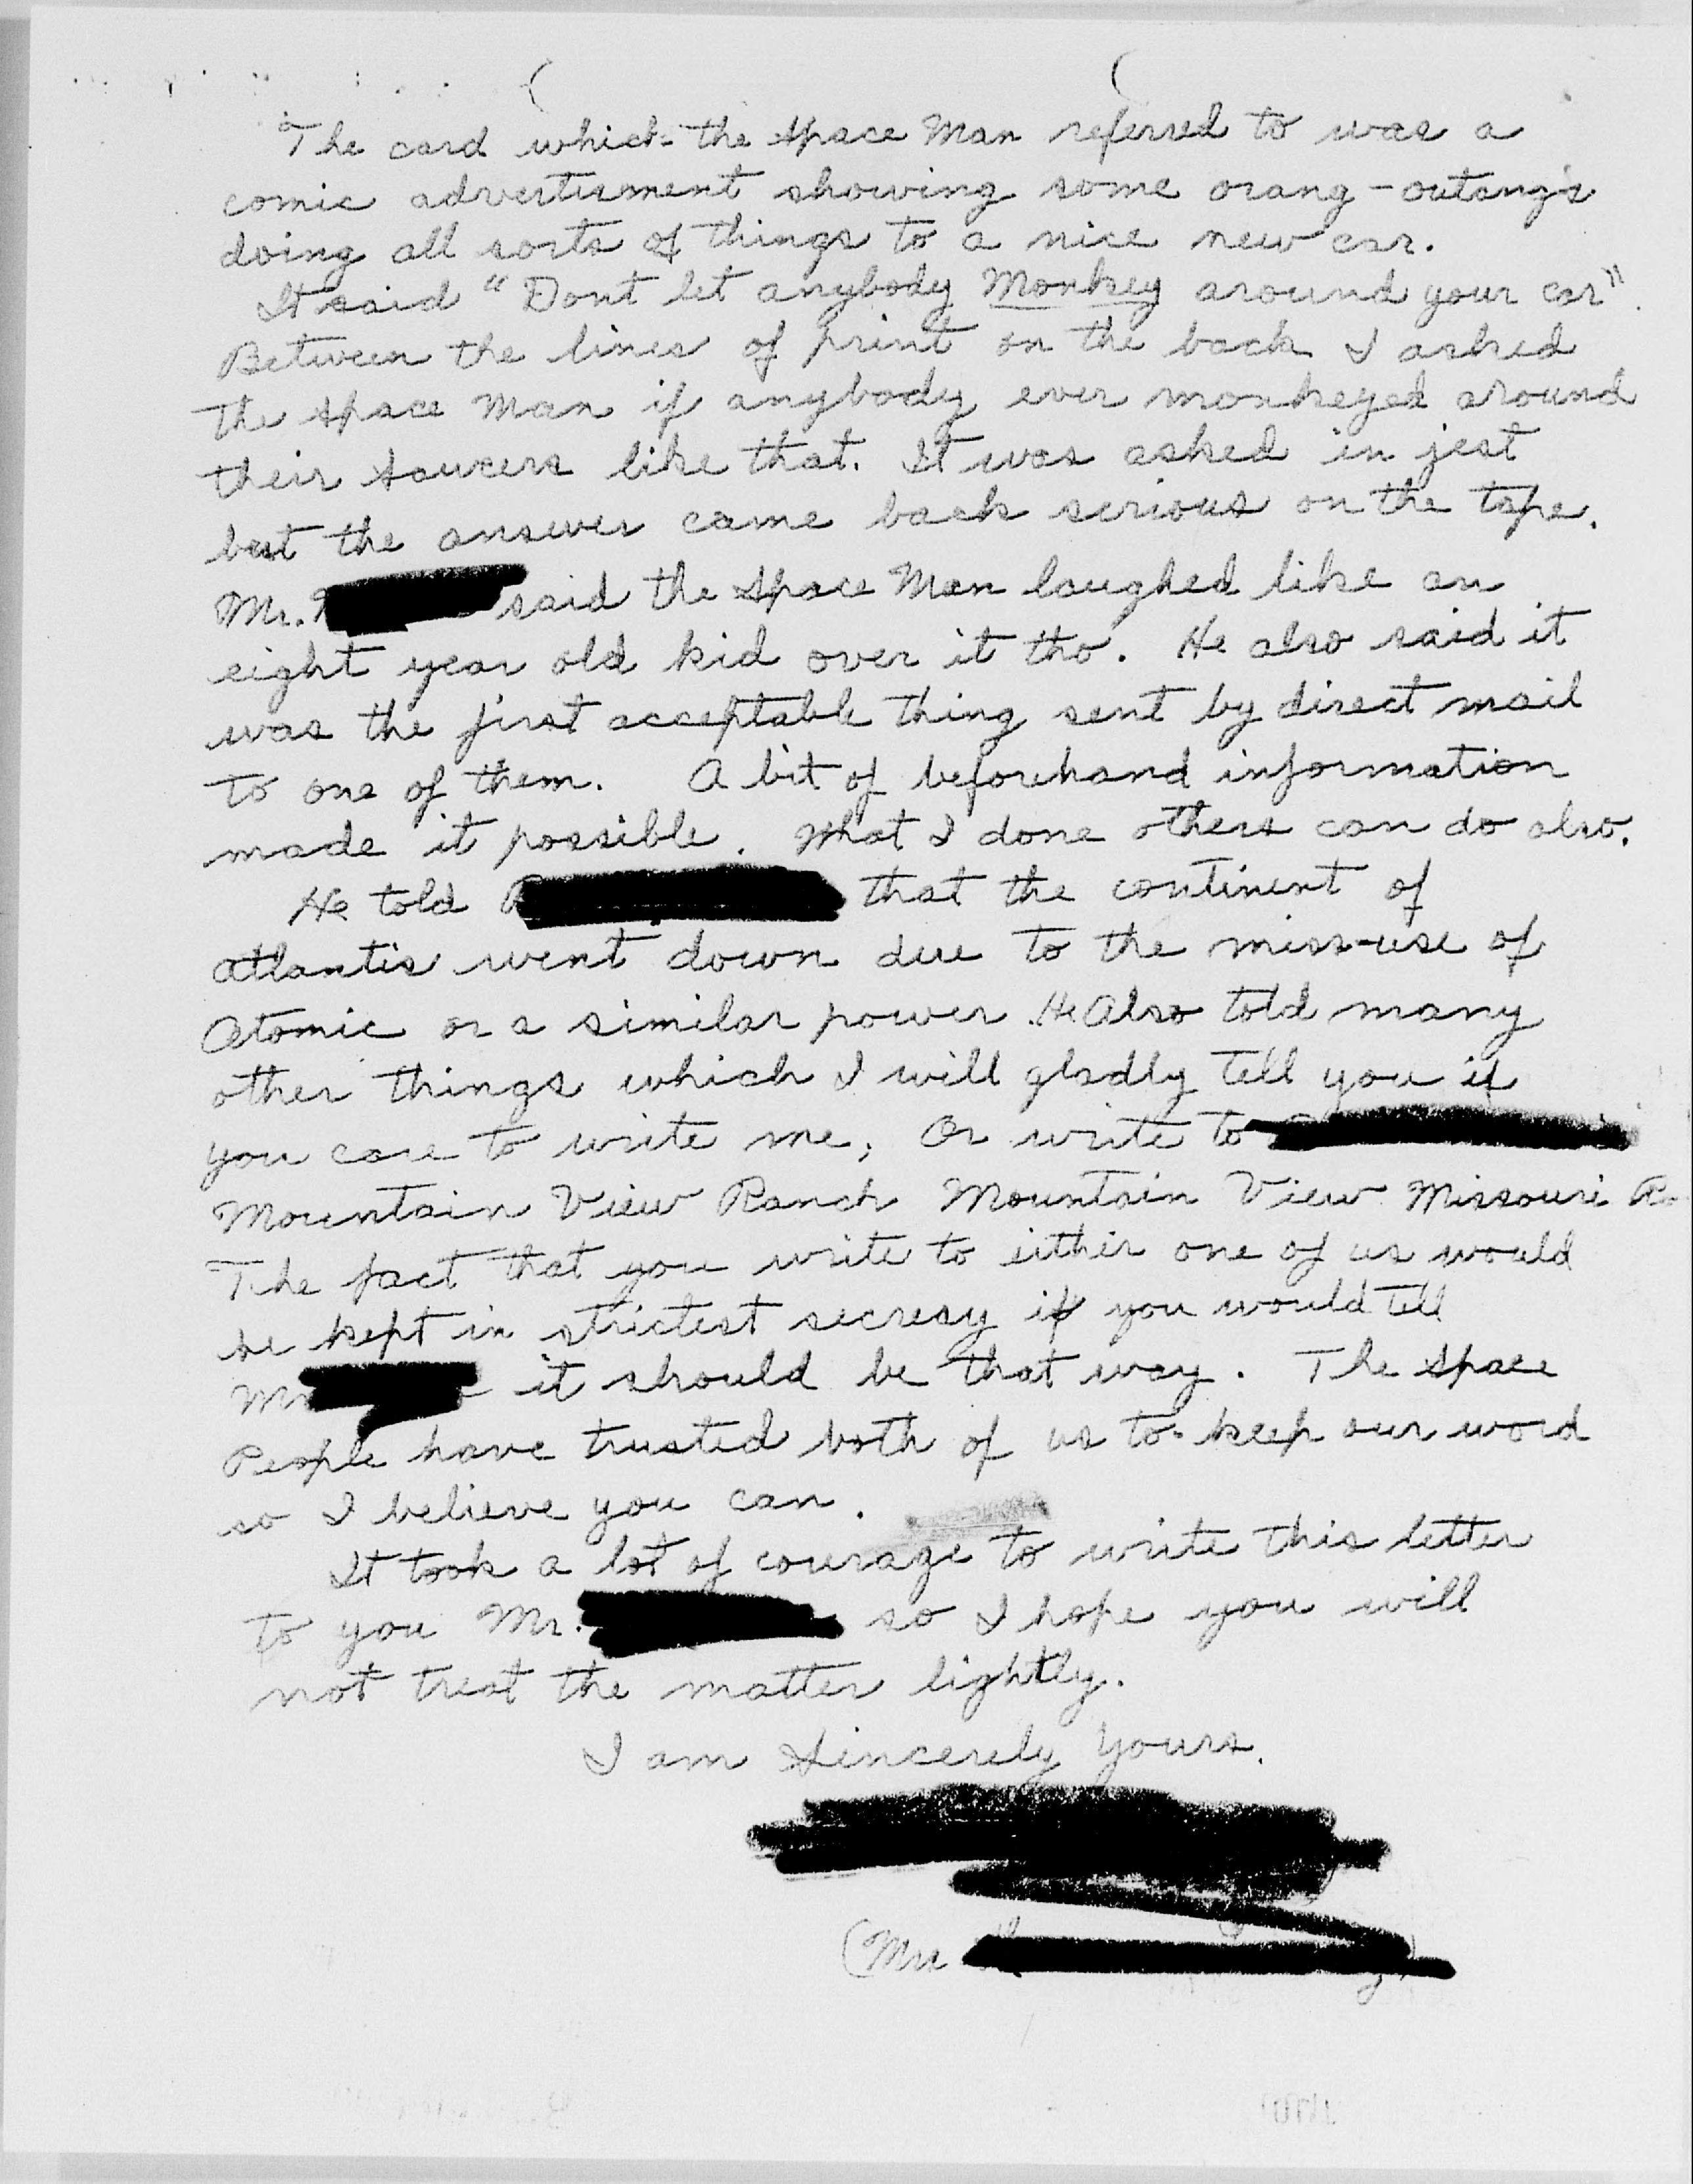 The card which the Space Man referred to was a
comic advertisment showing some orang-outang's
doing all sorts of things to a nice new car.
It said "Dont let anybody Monkey around your car".
Between the lines of print on the back I asked
the Space Man if anybody ever monkeyed around
their Saucers like that. It was asked in jest
but the answer came back serious on the tape.
Mr. said the Space Man laughed like an
eight year old kid over it tho. He also said it
was the first acceptable thing sent by direct mail
to one of them. A bit of beforehand information
made it possible. What I done others can do also.
He told that the continent of
Atlantis went down due to the miss-use of
Atomic or a similar power. He Also told many
other things which I will gladly tell you if
you care to write me; Or write to
Mountain View Ranch Mountain View Missouri
The fact that you write to either one of us would
be kept in strictest secresy if you would tell
Mr it should be that way. The Space
People have trusted both of us to keep our word
so I believe you can.
It took a lot of courage to write this letter
to you Mr. so I hope you will
not treat the matter lightly.
I am Sincerely Yours.
(Mrs